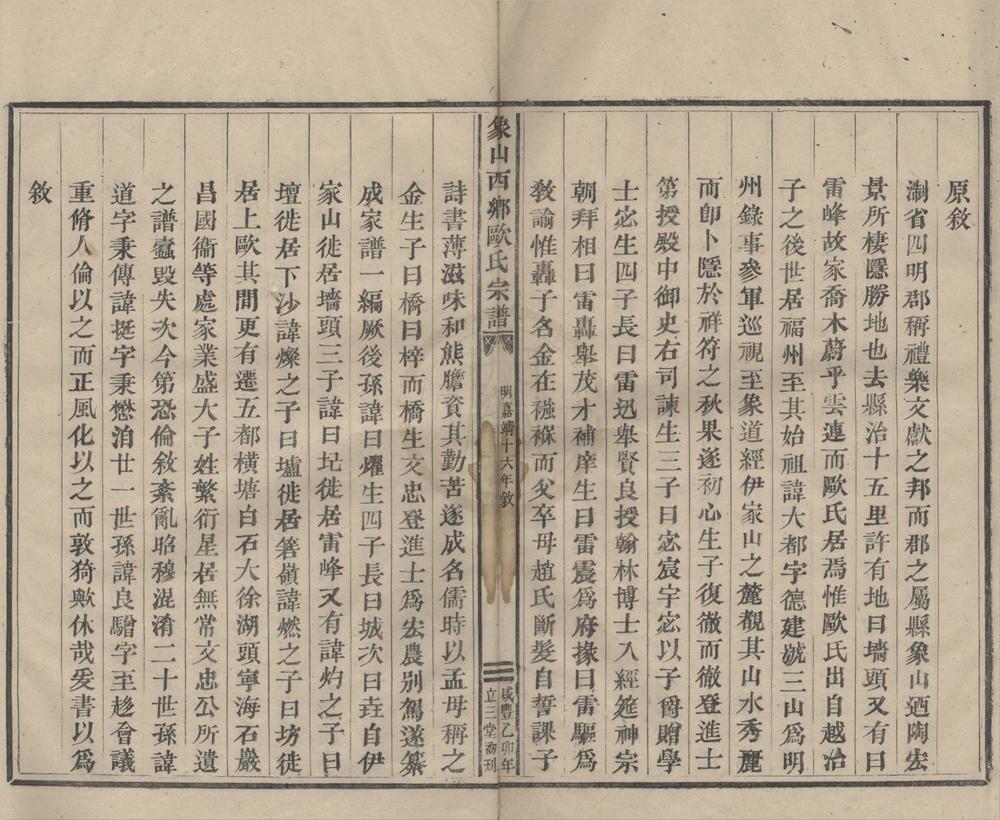 原敘
淛省四明郡稱禮樂文獻之邦而郡之屬縣象山迺陶宏
景所棲隱勝地也去縣治十五里許有地曰墻頭又有曰
雷峰故家喬木蔚乎雲連而歐氏居焉惟歐氏出自越冶
子之後世居福州至其始祖諱大都字德建號三山爲明
州錄事參軍巡視至象道經伊家山之麓覩其山水秀麗
而卽卜隱於祥符之秋果遂初心生子復徹而徹登進士
第授殿中御史右司諫生三子曰宓宸宇宓以子爵贈學
士宓生四子長曰雷迅舉賢良授翰林博士入經筵神宗
朝拜相曰雷轟舉茂才補庠生曰雷震爲府掾曰雷驅爲
敎諭惟轟子名金在襁褓而父卒母趙氏斷髮自誓課子
象山西鄉歐氏宗譜
明嘉靖十六年敘
三
咸豐乙卯年
立三堂 刊
詩書薄滋味和熊膽資其勤苦遂成名儒時以孟母稱之
金生子曰橋曰梓而橋生文忠登進士爲宏農別駕遂纂
成家譜一編厥後孫諱曰燿生四子長曰城次曰垚自伊
家山徙居墻頭三子諱曰圯徙居雷峰又有諱灼之子曰
壇徙居下沙諱燦之子曰壚徙居箬嶺諱燃之子曰坊徙
居上歐其間更有遷五都橫塘白石大徐湖頭寧海石巖
昌國衞等處家業盛大子姓繁衍星居無常文忠公所遺
之譜蠹毀失次今第恐倫敘紊亂昭穆混淆二十世孫諱
道字秉傳諱挺字秉懋洎廿一世孫諱良驓字至趁會議
重脩人倫以之而正風化以之而敦猗歟休哉爰書以爲
敘